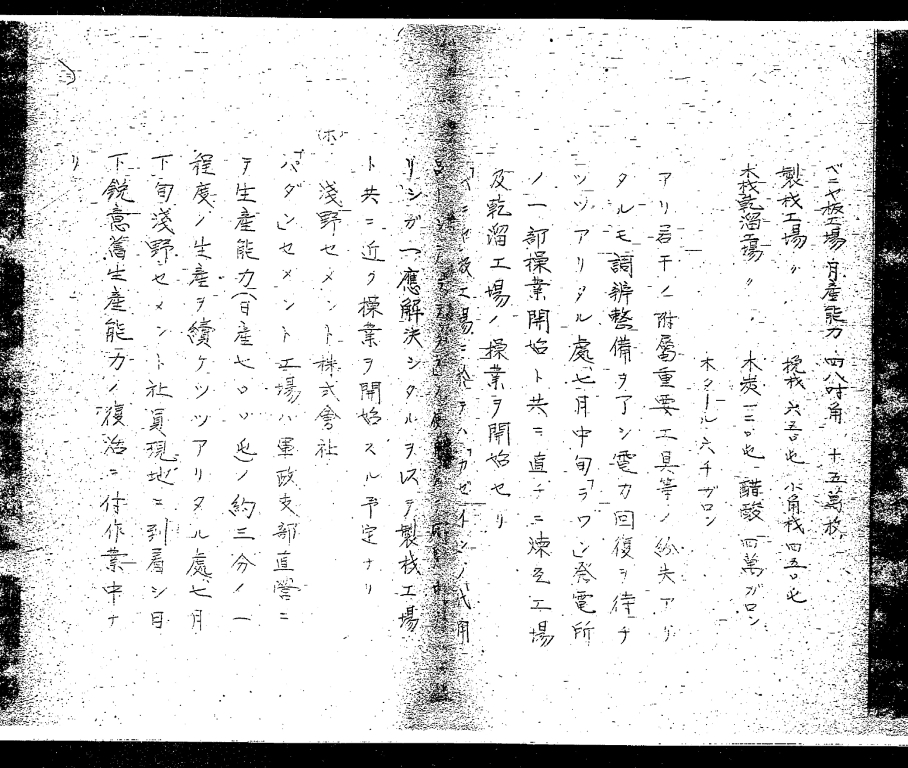 ベニヤ板工場 月産能力 四八吋角 十五萬枚
製材工場 〃 、 挽材 六五〇屯 小角材四五〇屯
木材乾溜工場 〃 、 木炭一二〇屯 醋酸 四萬ガロン
木タール六チガロン
アリ若干ノ附属重要工具等ノ紛失アリ
タルモ調辨整備ヲ了シ電力回復ヲ待チ
ツツアリタル處七月中旬「ラワ」発電所
ノ一部操業開始ト共ニ直チニ煉瓦工場
及乾溜工場ノ操業ヲ開始セリ
「ベニヤ」板工場ニ於テハ「カゼイン」ノ代用
リシガ一應解決シタルヲ以テ製材工場
ト共ニ近ク操業ヲ開始スル予定ナリ
(ホ) 淺野セメント株式會社
「パダン」セメント工場ハ軍政支部直營ニ
テ生産能力(日産七〇〇屯)ノ約三分ノ一
程度ノ生産ヲ續ケツツアリタル處七月
下旬淺野セメント社員現地ニ到着シ目
下鋭意舊生産能力ノ復活ニ付作業中ナ
リ